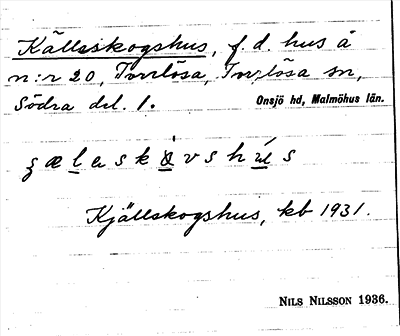 Källeskogshus, f. d. hus å
n:r 20, Torrlösa, Torrlösa sn,
Södra del. 1.
Onsjö hd, Malmöhus län.
Kjällskogshus, kb 1931.
NILS NILSSON 1936.